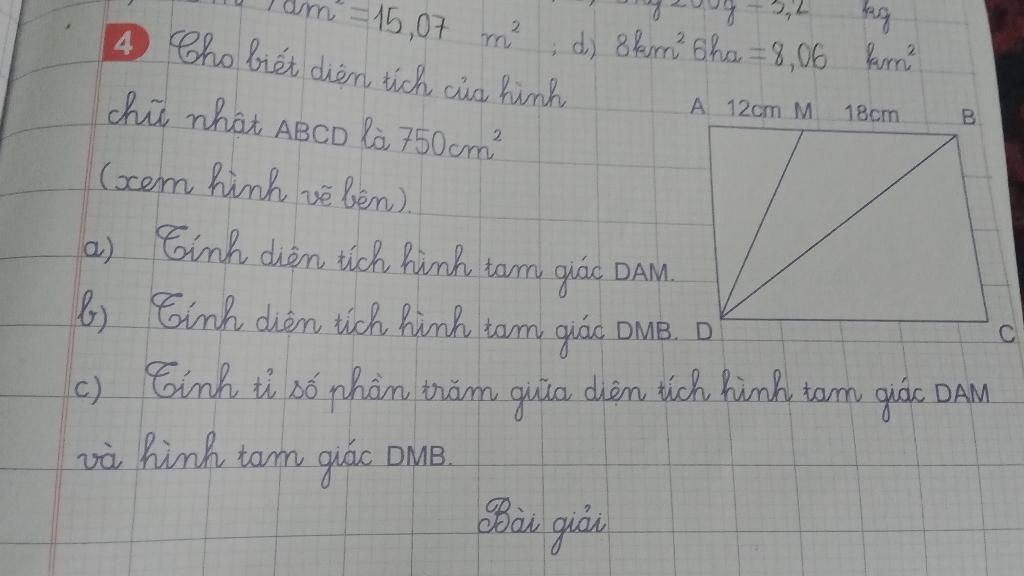 dm² = 15,07 m² ; d) 200g = 3,2 kg
8km² 6ha = 8,06 km²
4 Cho biết diện tích của hình
chữ nhật ABCD là 750cm²
(xem hình vẽ bên).
A 12cm M 18cm B
a) Tính diện tích hình tam giác DAM.
b) Tính diện tích hình tam giác DMB. D
C
c) Tính tỉ số phần trăm giữa diện tích hình tam giác DAM
và hình tam giác DMB.
Bài giải